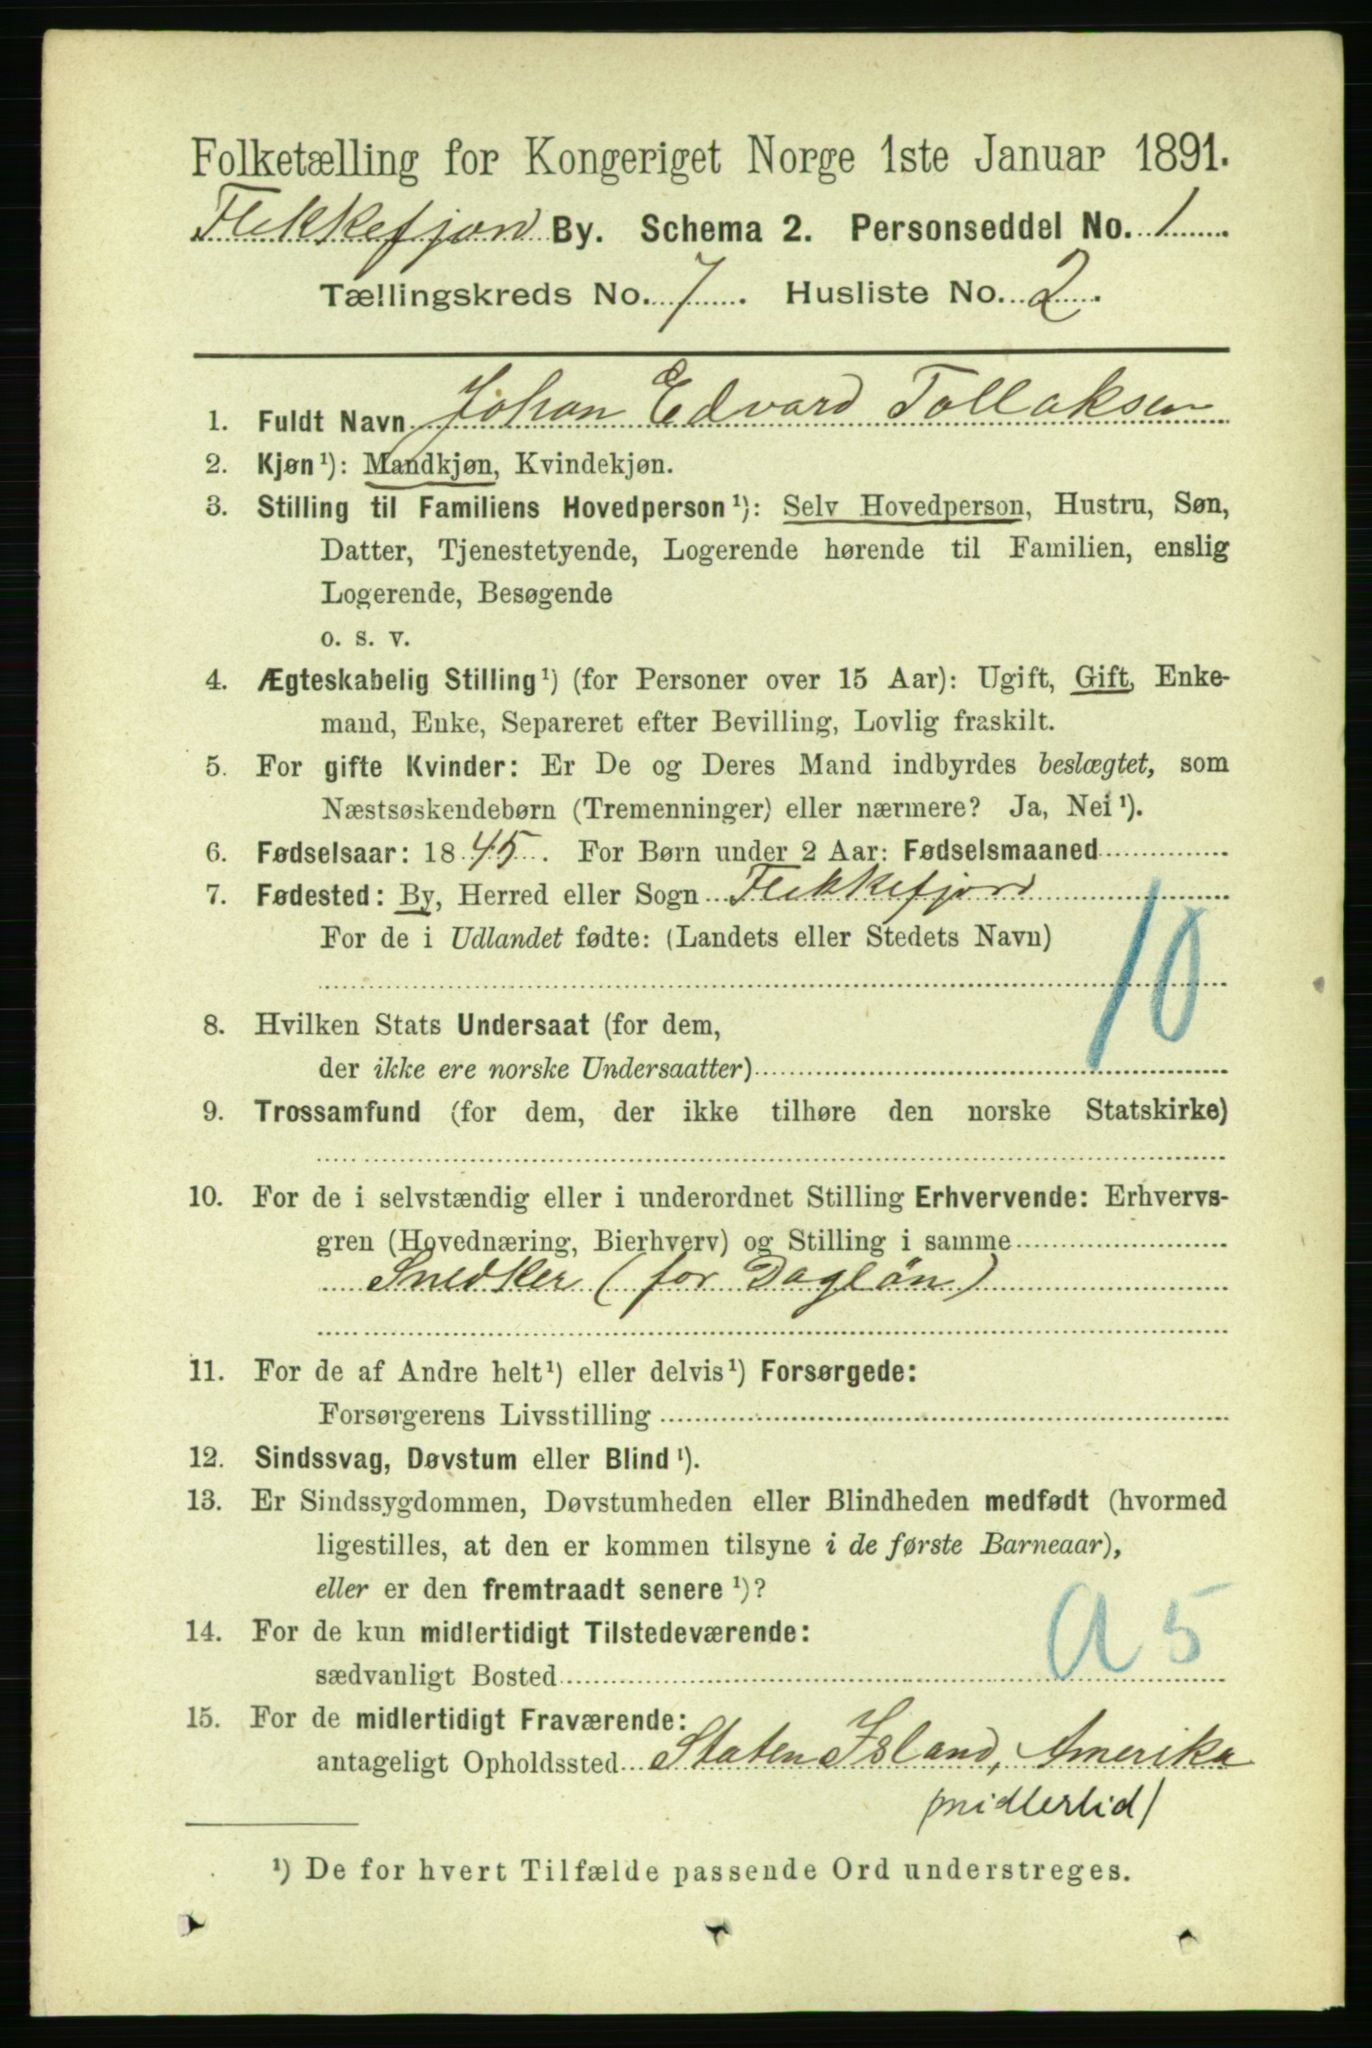 Folketælling for Kongeriget Norge 1ste Januar 1891.
Flekkefjord By. Schema 2. Personseddel No. 1
Tællingskreds No. 7. Husliste No. 2.
1. Fuldt Navn Johan Edvard Tollaksen
2. Kjøn ¹): Mandkjøn, Kvindekjøn.
3. Stilling til Familiens Hovedperson ¹): Selv Hovedperson, Hustru, Søn,
Datter, Tjenestetyende, Logerende hørende til Familien, enslig
Logerende, Besøgende
o. s. v.
4. Ægteskabelig Stilling ¹) (for Personer over 15 Aar): Ugift, Gift, Enke-
mand, Enke, Separeret efter Bevilling, Lovlig fraskilt.
5. For gifte Kvinder: Er De og Deres Mand indbyrdes beslægtet, som
Næstsøskendebørn (Tremenninger) eller nærmere? Ja, Nei ¹).
6. Fødselsaar: 1845. For Børn under 2 Aar: Fødselsmaaned
7. Fødested: By, Herred eller Sogn Flekkefjord
For de i Udlandet fødte: (Landets eller Stedets Navn)
10
8. Hvilken Stats Undersaat (for dem,
der ikke ere norske Undersaatter)
9. Trossamfund (for dem, der ikke tilhøre den norske Statskirke)
10. For de i selvstændig eller i underordnet Stilling Erhvervende: Erhvervs-
gren (Hovednæring, Bierhverv) og Stilling i samme
Snedker (for Dagløn)
11. For de af Andre helt ¹) eller delvis ¹) Forsørgede:
Forsørgerens Livsstilling
12. Sindssvag, Døvstum eller Blind ¹).
13. Er Sindssygdommen, Døvstumheden eller Blindheden medfødt (hvormed
ligestilles, at den er kommen tilsyne i de første Barneaar),
eller er den fremtraadt senere ¹)?
14. For de kun midlertidigt Tilstedeværende:
sædvanligt Bosted
a 5
15. For de midlertidigt Fraværende:
antageligt Opholdssted Staten Island, Amerika
/midlertid/
¹) De for hvert Tilfælde passende Ord understreges.